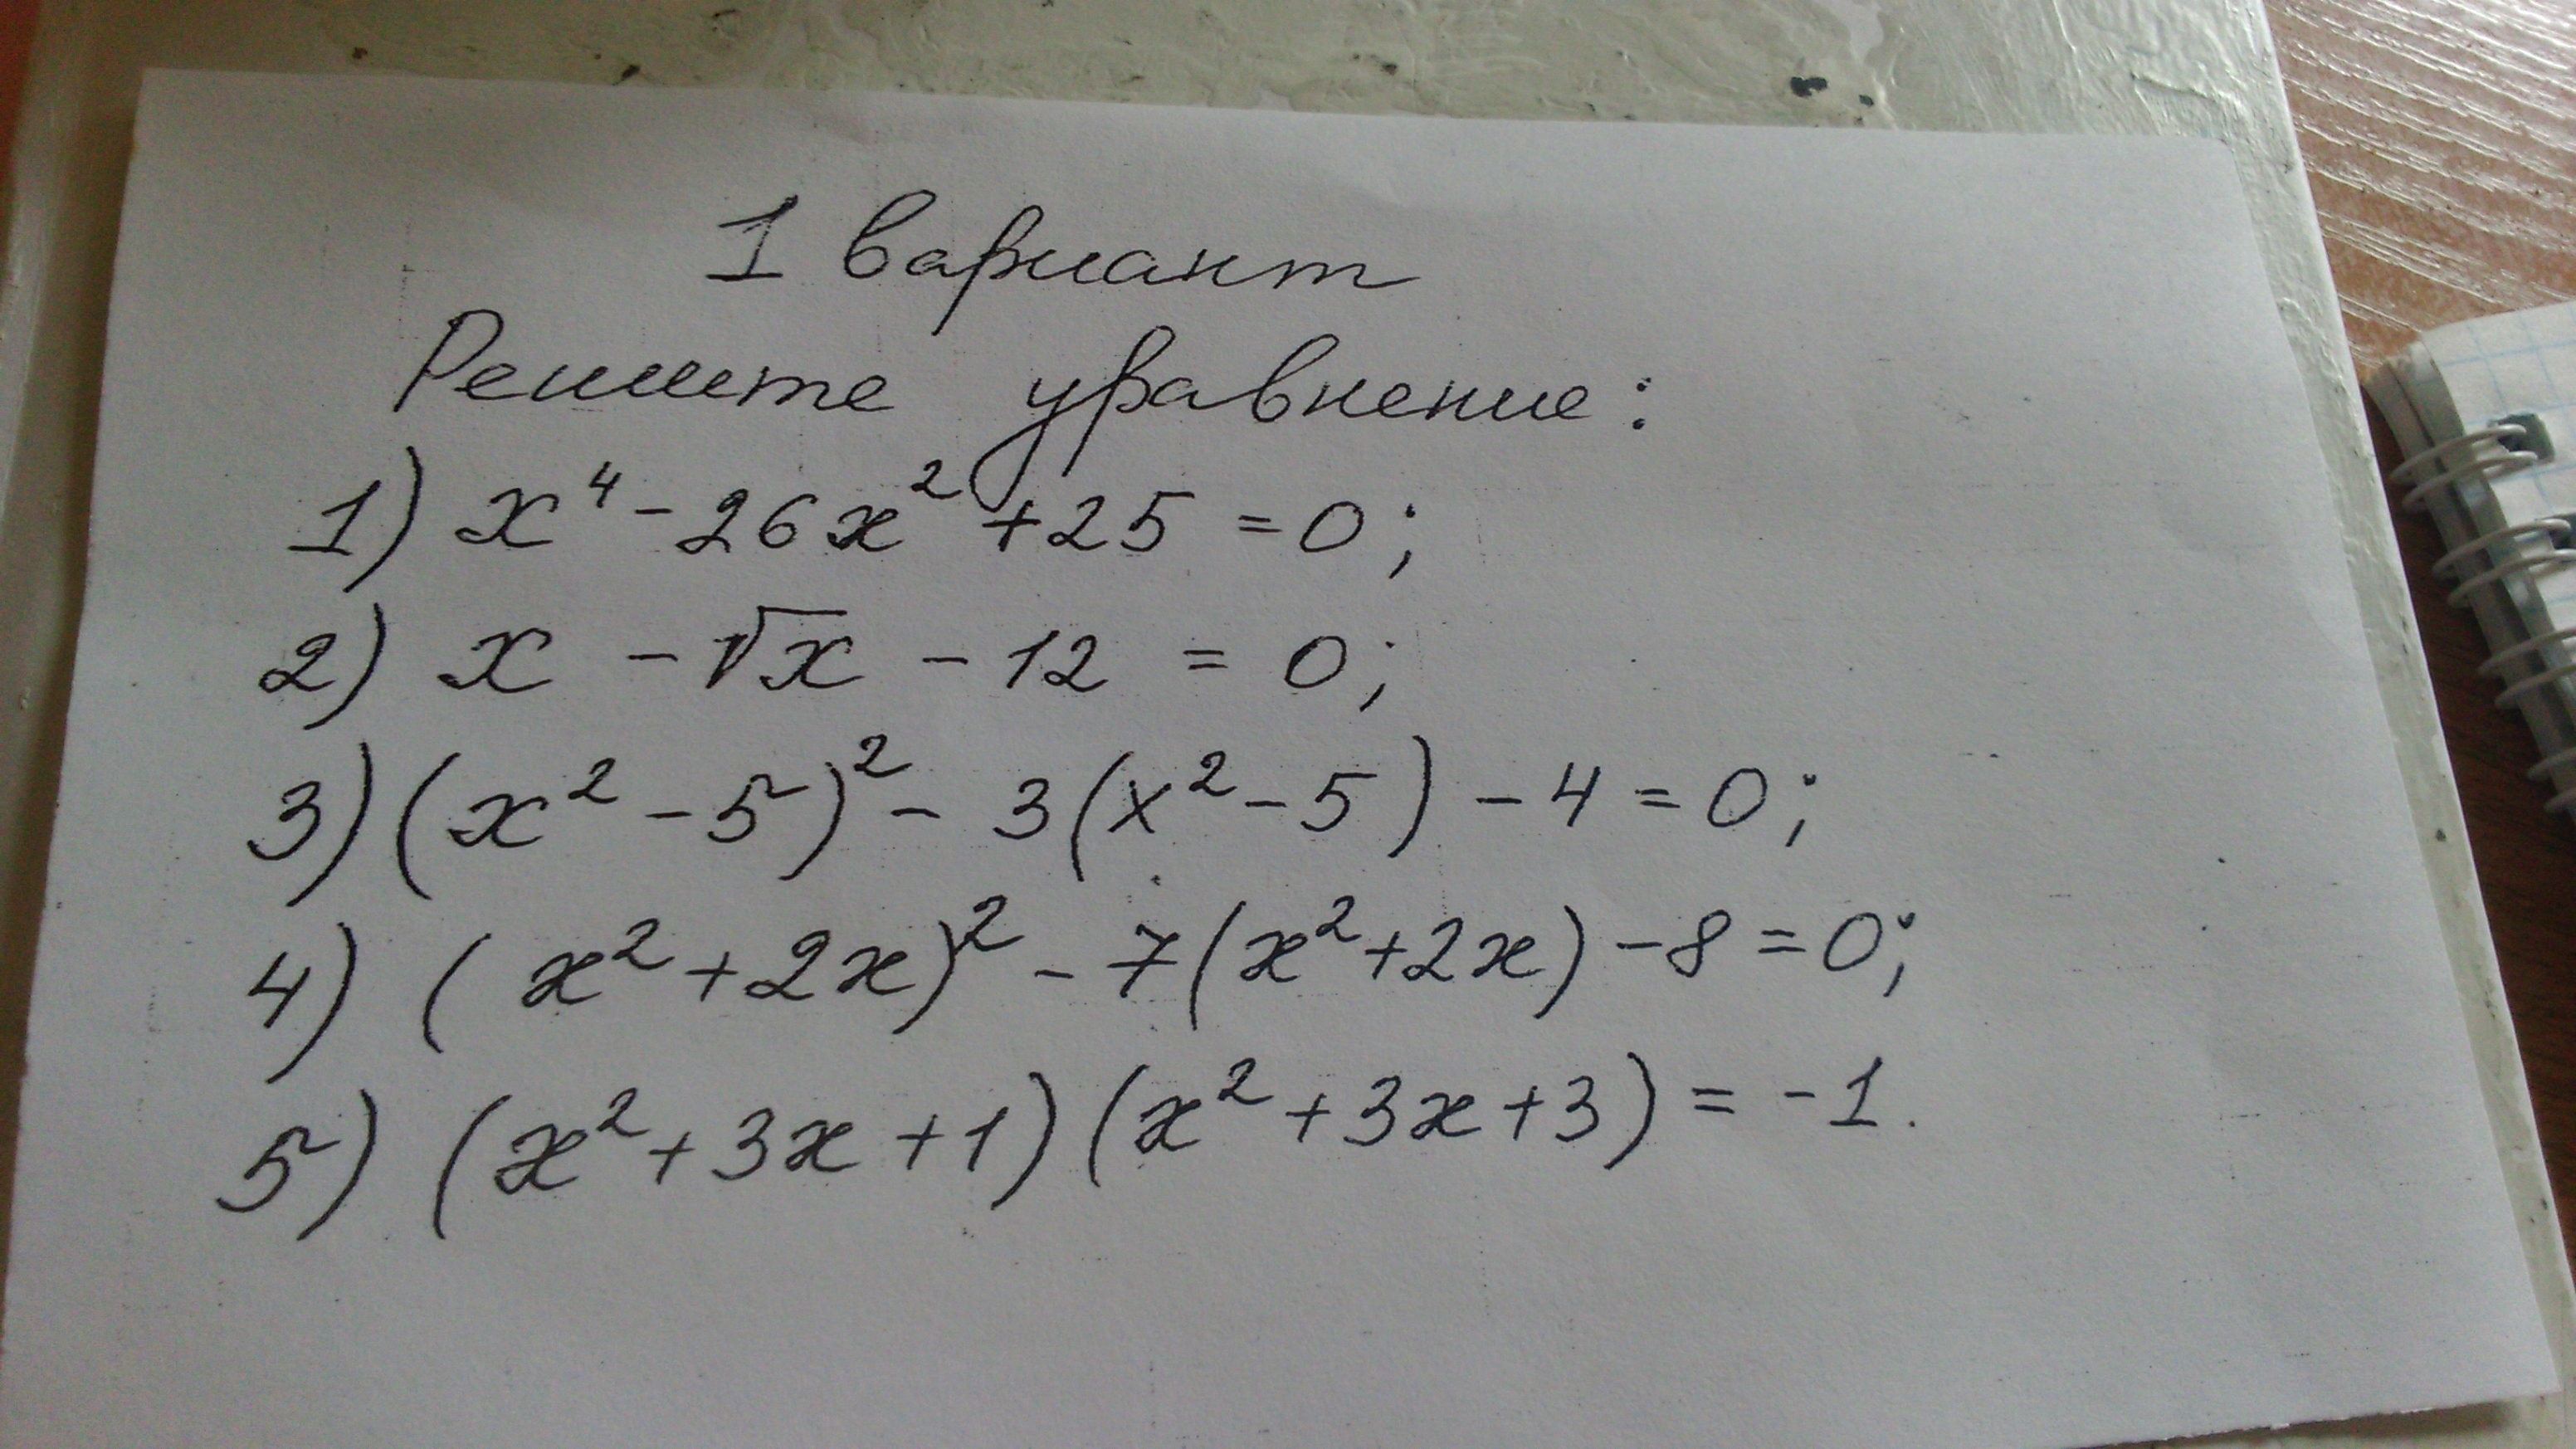 1 вариант
Решите уравнение:
1) x⁴ - 26x² + 25 = 0;
2) x - √x - 12 = 0;
3) (x² - 5)² - 3(x² - 5) - 4 = 0;
4) (x² + 2x)² - 7(x² + 2x) - 8 = 0;
5) (x² + 3x + 1)(x² + 3x + 3) = -1.